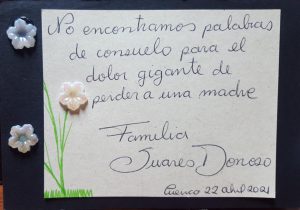 No encontramos palabras
de consuelo para el
dolor gigante de
perder a una madre
Familia
Suares Donoso
Cuenca 22 abril 2021